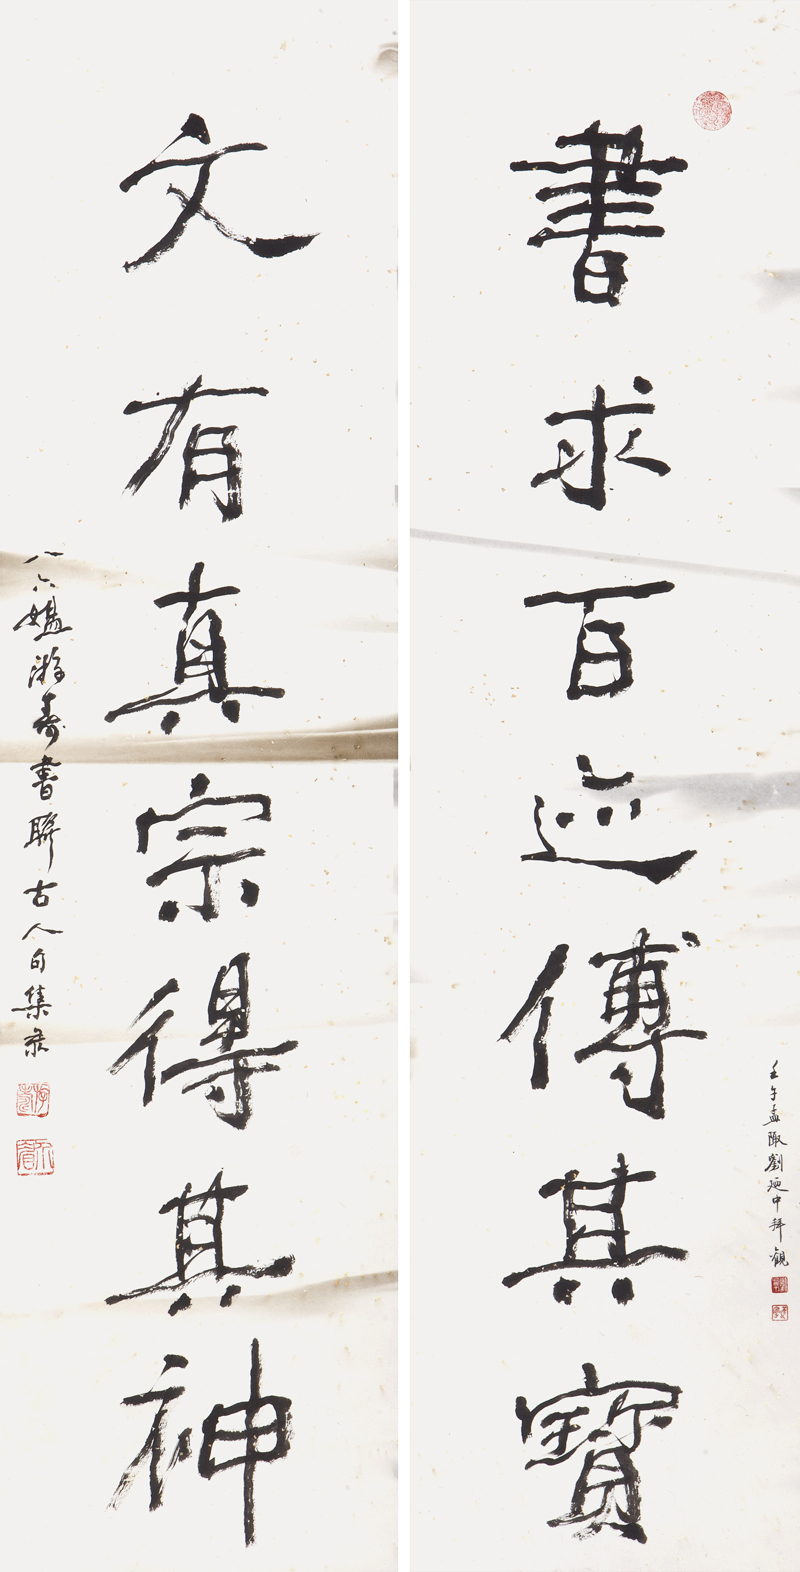 書求百迹傳其寶
壬午孟陬劉廼中拜觀
文有真宗得其神
八六媼游寿書聯古人句集录
游寿